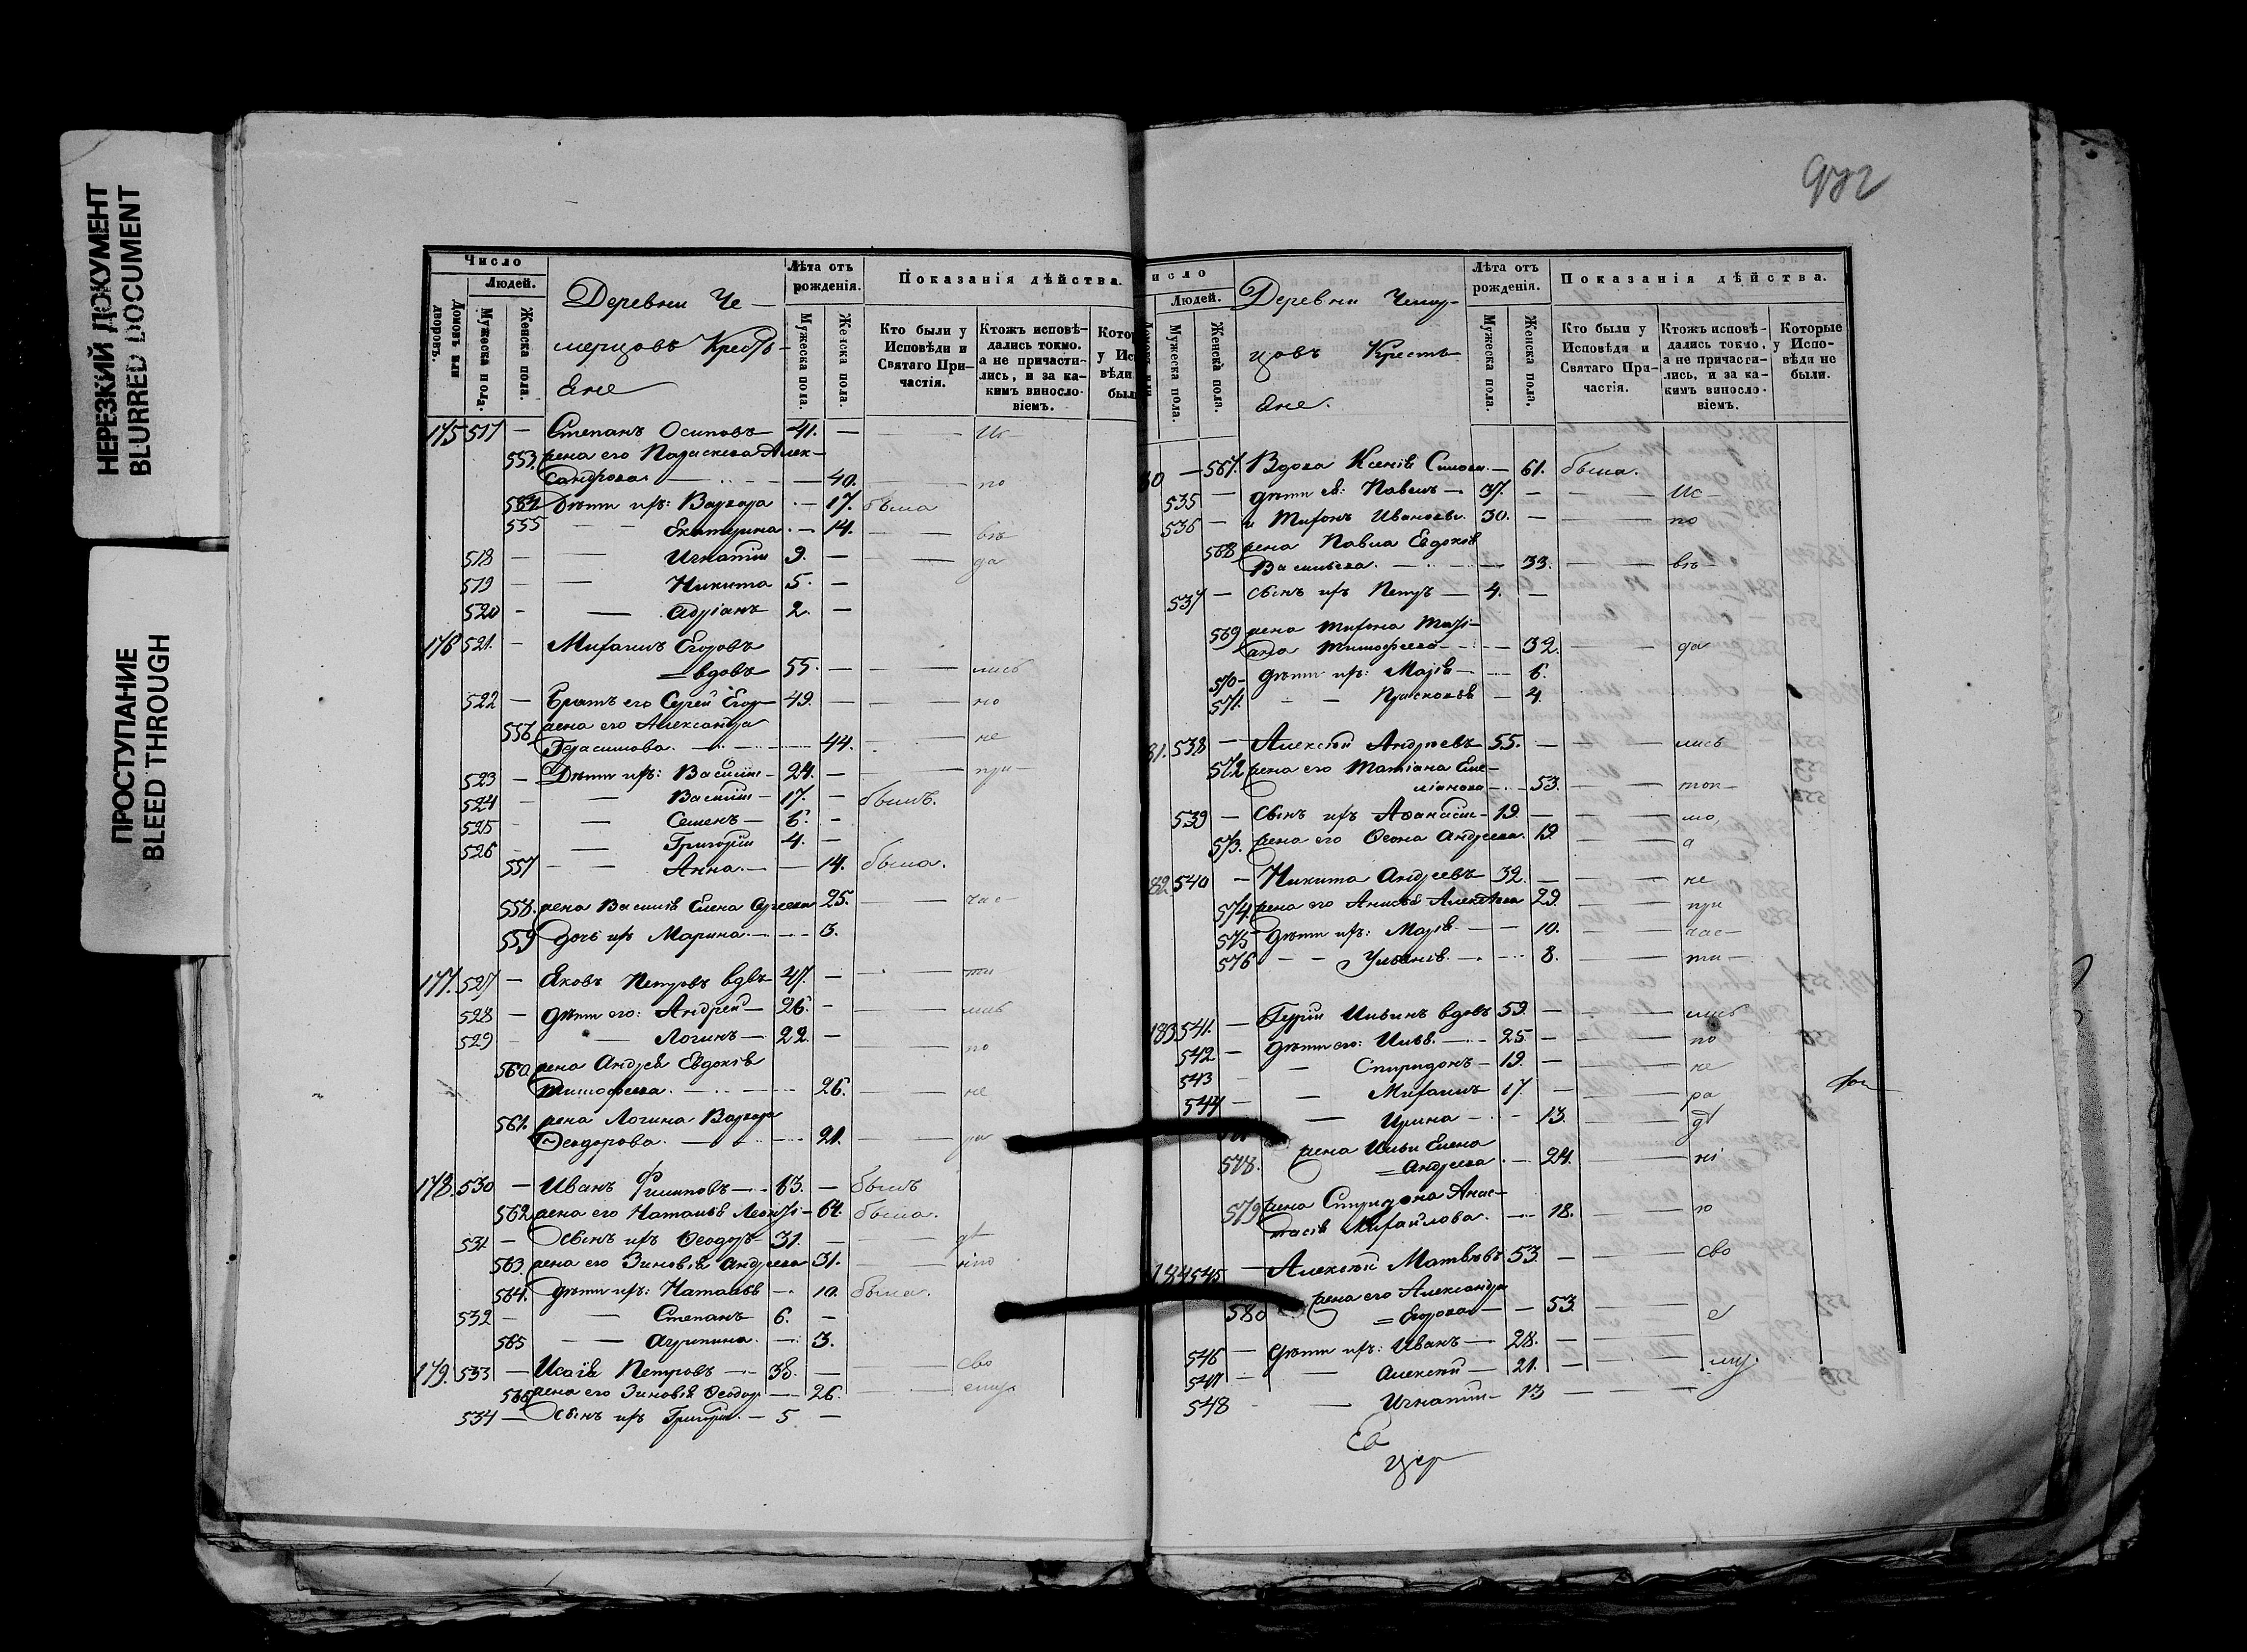 НЕРЕЗКИЙ ДОКУМЕНТ
BLURRED DOCUMENT
ПРОСТУПАНИЕ
BLEED THROUGH
Число
Людей.
Домовъ или дворовъ.
Мужеска пола.
Женска пола.
Деревни Че-
мерцовъ Кресть-
яне
Лѣта отъ рожденія.
Мужеска пола.
Женска пола.
Показанія дѣйства.
Кто были у Исповѣди и Святаго Причастія.
Ктожъ исповѣдались токмо, а не причастились, и за какимъ винословіемъ.
175 517 — Степанъ Осиповъ — 41. — Ис-
553. жена его Параскева Алек-
сандрова — 40. — по
554 Дѣти ихъ: Варвара — 17. была
555 — Екатерина — 14. — вѣ
518 — Игнатій 9. — да
519 — Никита 5. —
520 — Адріанъ 2. —
176 521. — Михаилъ Егоровъ
вдовъ 55. — лись
522 — Братъ его Сергей Егор — 49. — но
556 жена его Александра
Герасимова — 44. — не
523 — Дѣти ихъ: Василій — 24. — при-
524 — Василій — 17. — былъ.
525 — Семенъ — 6. —
526 — Григорій 4. —
557 — Анна — 14. была.
558. жена Василія Елена Сергеева 25. — час-
559 дочь ихъ Марина — 3.
177. 527 — Яковъ Петровъ вдвъ 47. — ти
528 — дѣти его: Андрей — 26. — лись
529 — Логинъ — 22. — по
560. жена Андрея Евдокія
Тимофеева — 26. — не
561. жена Логина Варвара
Ѳеодорова — 21. — ра
178. 530 — Иванъ Филиповъ — 63. — былъ
562 жена его Наталья — 64. была.
531. — Сынъ ихъ Ѳеодоръ — 31. —
563. жена его Зиновія Андреева 31. — нію
564. дѣти ихъ: Наталья — 10. была.
532 — Степанъ 6. —
565 — Агрипина — 3.
179. 533 — Исаія Петровъ — 38. — сво
566 жена его Зиновія Ѳеодор — 26. — ему
534 — Сынъ ихъ Григорій — 5 —
Людей.
Мужеска пола.
Женска пола.
Деревни Чемер-
цовъ Кресть-
яне.
Лѣта отъ рожденія.
Мужеска пола.
Женска пола.
Показанія дѣйства.
Кто были у Исповѣди и Святаго Причастія.
Ктожъ исповѣдались токмо, а не причастились, и за какимъ винословіемъ.
Которые у Исповѣди не были.
— 567. Вдова Ксенія — 61. была.
535 — дѣти ея: Павелъ — 37. — Ис-
536 — и Миронъ Ивановы. 30. — по
568 жена Павла Евдокія
Васильева — 33. — вѣ
537 — сынъ ихъ Петръ — 4. —
569 жена Мирона Марі-
анна Тимофеева — 32. — да
570 — дѣти ихъ: Марія — 6.
571. — Прасковья — 4.
81. 538 — Алексѣй Андреевъ — 55. — лись
572 жена его Татіана Еме-
ліанова — 53. — ток-
539 — Сынъ ихъ Аѳанасій — 19. — мо,
573. жена его Андреева. 19 — а
82 540 — Никита Андреевъ — 32. — не
574. жена его Анисья 29. — при
575 дѣти ихъ: Марія — 10. — час-
576 — Ульянія — 8. — ти-
183 541. — Гурій Ильинъ вдовъ 59. — лись
542 — дѣти его: Илья — 25. — по
543 — Спиридонъ — 19. — не
544 — Михаилъ 17. — ра
— Ирина — 13. —
578. жена Ильи Елена
Андреева — 24. — ні
579 жена Спиридона Анас-
тасія Михайлова — 18. — ю
184 545 — Алексѣй Матвѣевъ 53. — сво
580 жена его Александра
Егорова — 53. — е
546 — дѣти ихъ: Иванъ — 28. —
547 — Алексѣй — 21. — му.
548 — Игнатій — 13 —